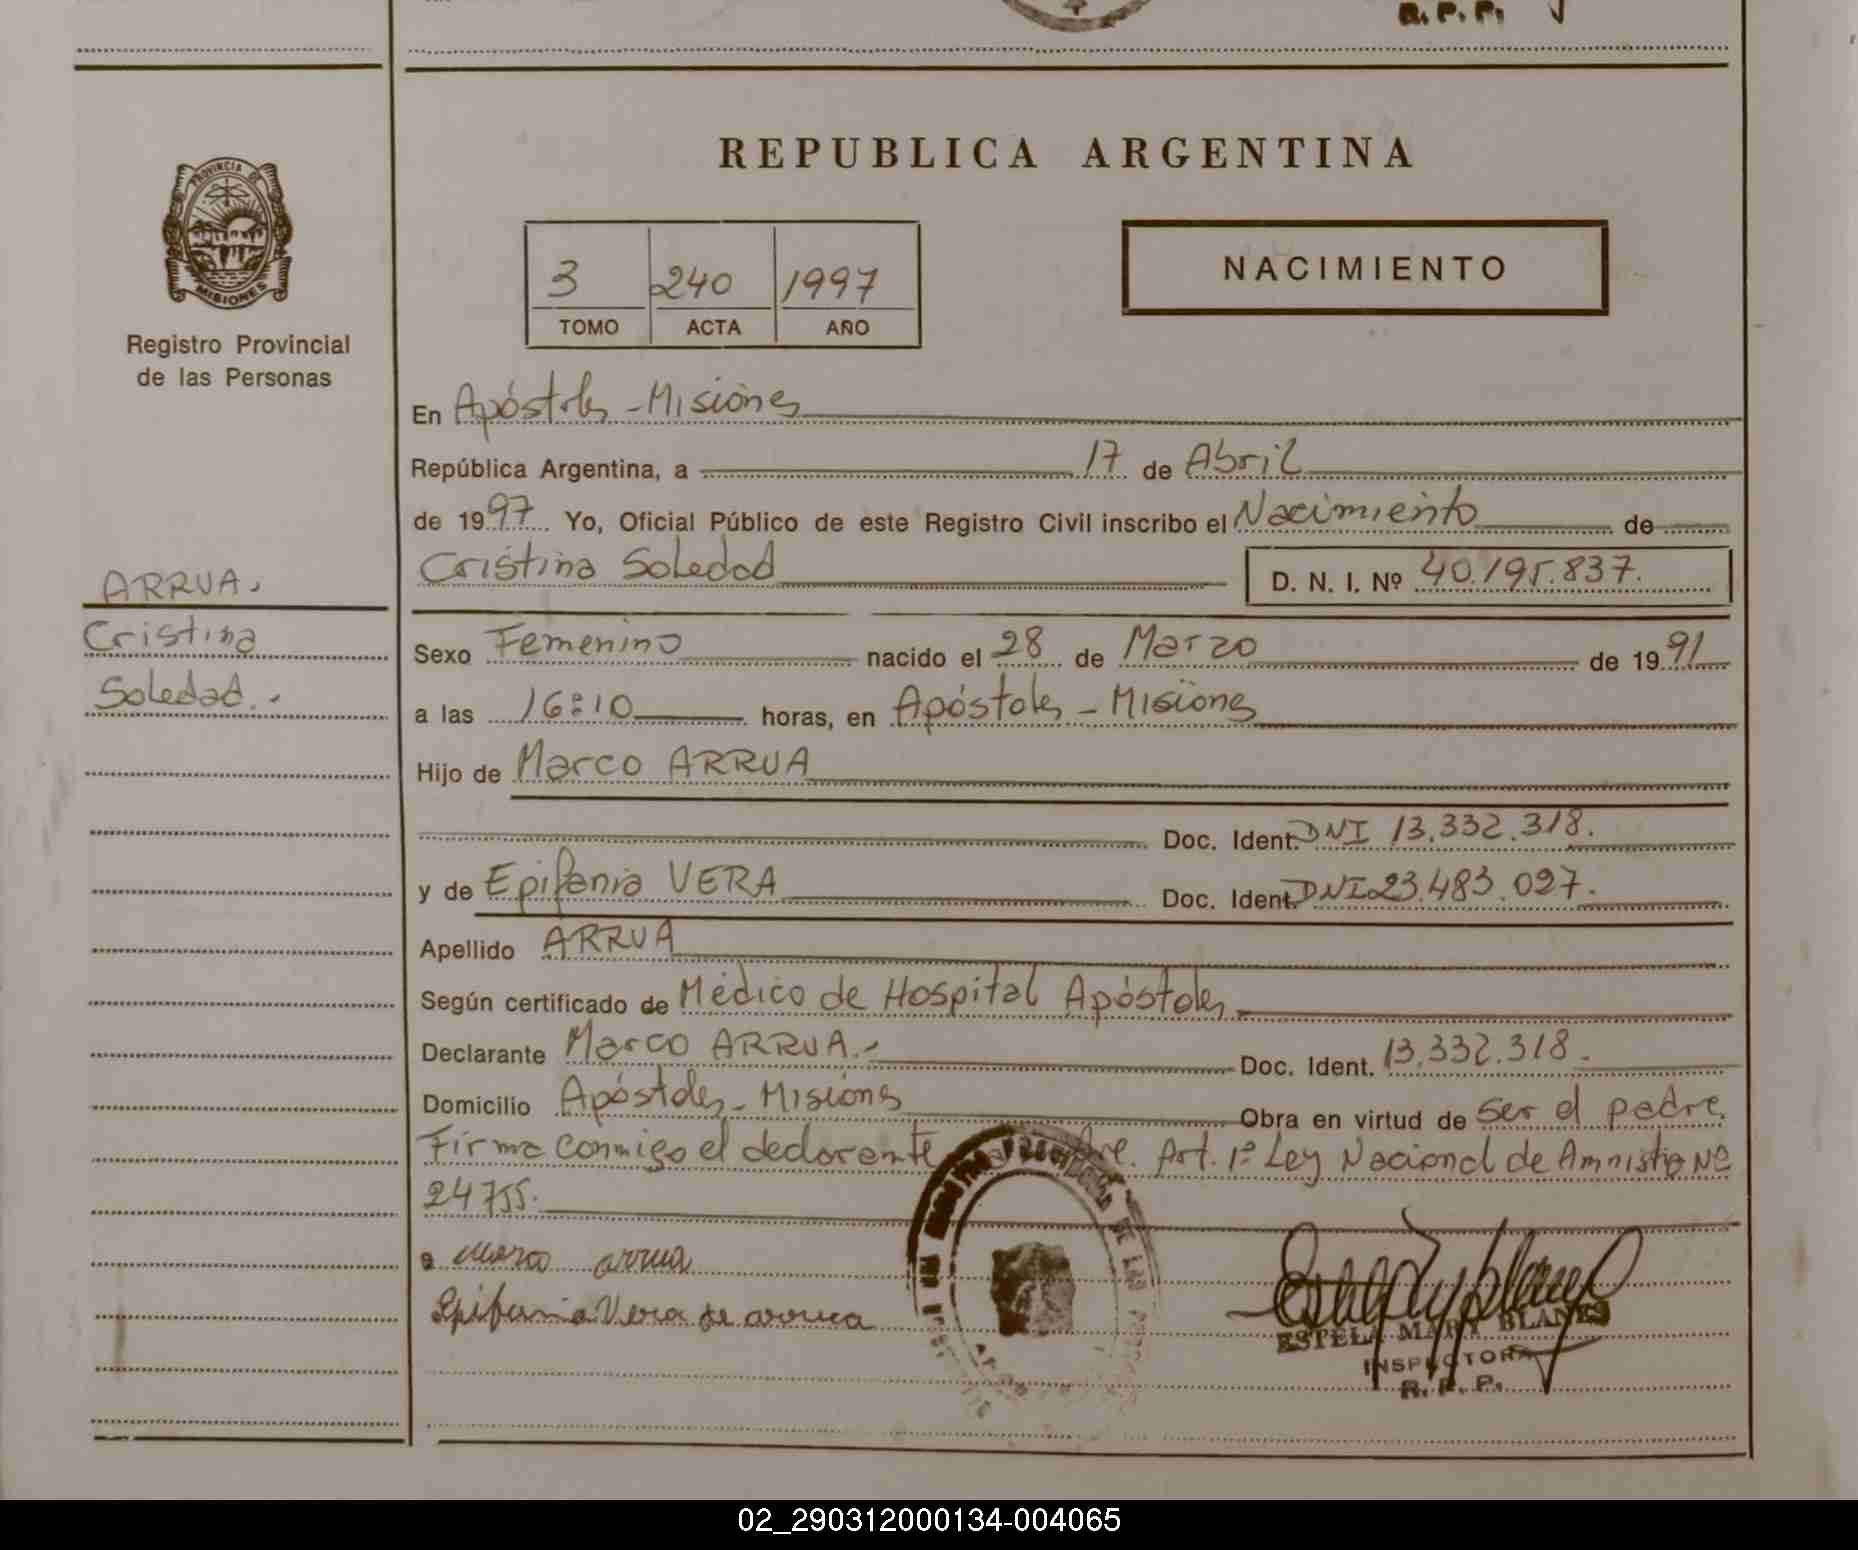 R. P. P.
REPUBLICA ARGENTINA
PROVINCIA DE
MISIONES
Registro Provincial
de las Personas
3 240 1997
TOMO ACTA AÑO
NACIMIENTO
En Apóstoles - Misiones
República Argentina, a 17 de Abril
de 1997 Yo, Oficial Público de este Registro Civil inscribo el Nacimiento de
Cristina Soledad D. N. I. Nº 40.195.837.
ARRUA.
Cristina
Soledad.-
Sexo Femenino nacido el 28 de Marzo de 1991
a las 16:10 horas, en Apóstoles - Misiones
Hijo de Marco ARRUA
Doc. Ident. DNI 13.332.318.
y de Epifania VERA Doc. Ident. DNI 23.483.027.
Apellido ARRUA
Según certificado de Médico de Hospital Apóstoles
Declarante Marco ARRUA.- Doc. Ident. 13.332.318.
Domicilio Apóstoles - Misiones Obra en virtud de ser el padre.
Firma conmigo el declarante Art. 1º Ley Nacional de Amnistia Nº
24755.
marco arrua
Epifania Vera de arrua
ESTELA MARY BLANES
INSPECTORA
R. P. P.
02_290312000134-004065